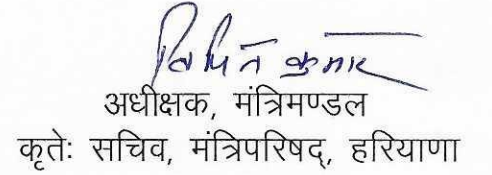 कुमार
अधीक्षक, मंत्रिमण्डल
कृतेः सचिव, मंत्रिपरिषद्, हरियाणा